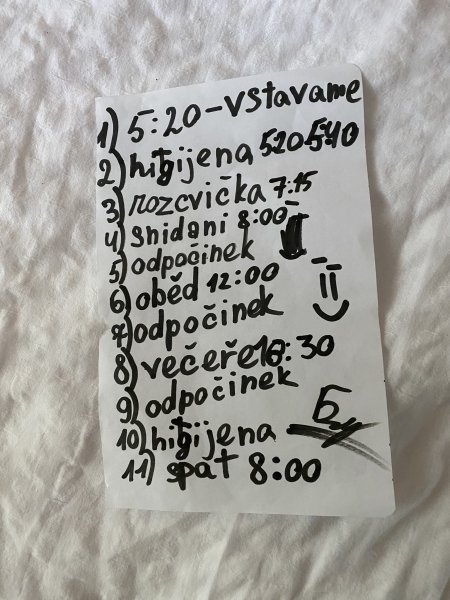 1) 5:20-vstavame
2) higijena 520-5:40
3) rozcvička 7:15
4) snidani 8:00
5) odpočinek
6) oběd 12:00
7) odpočinek
8) večeře 16:30
9) odpočinek
10) higijena
11) spat 8:00